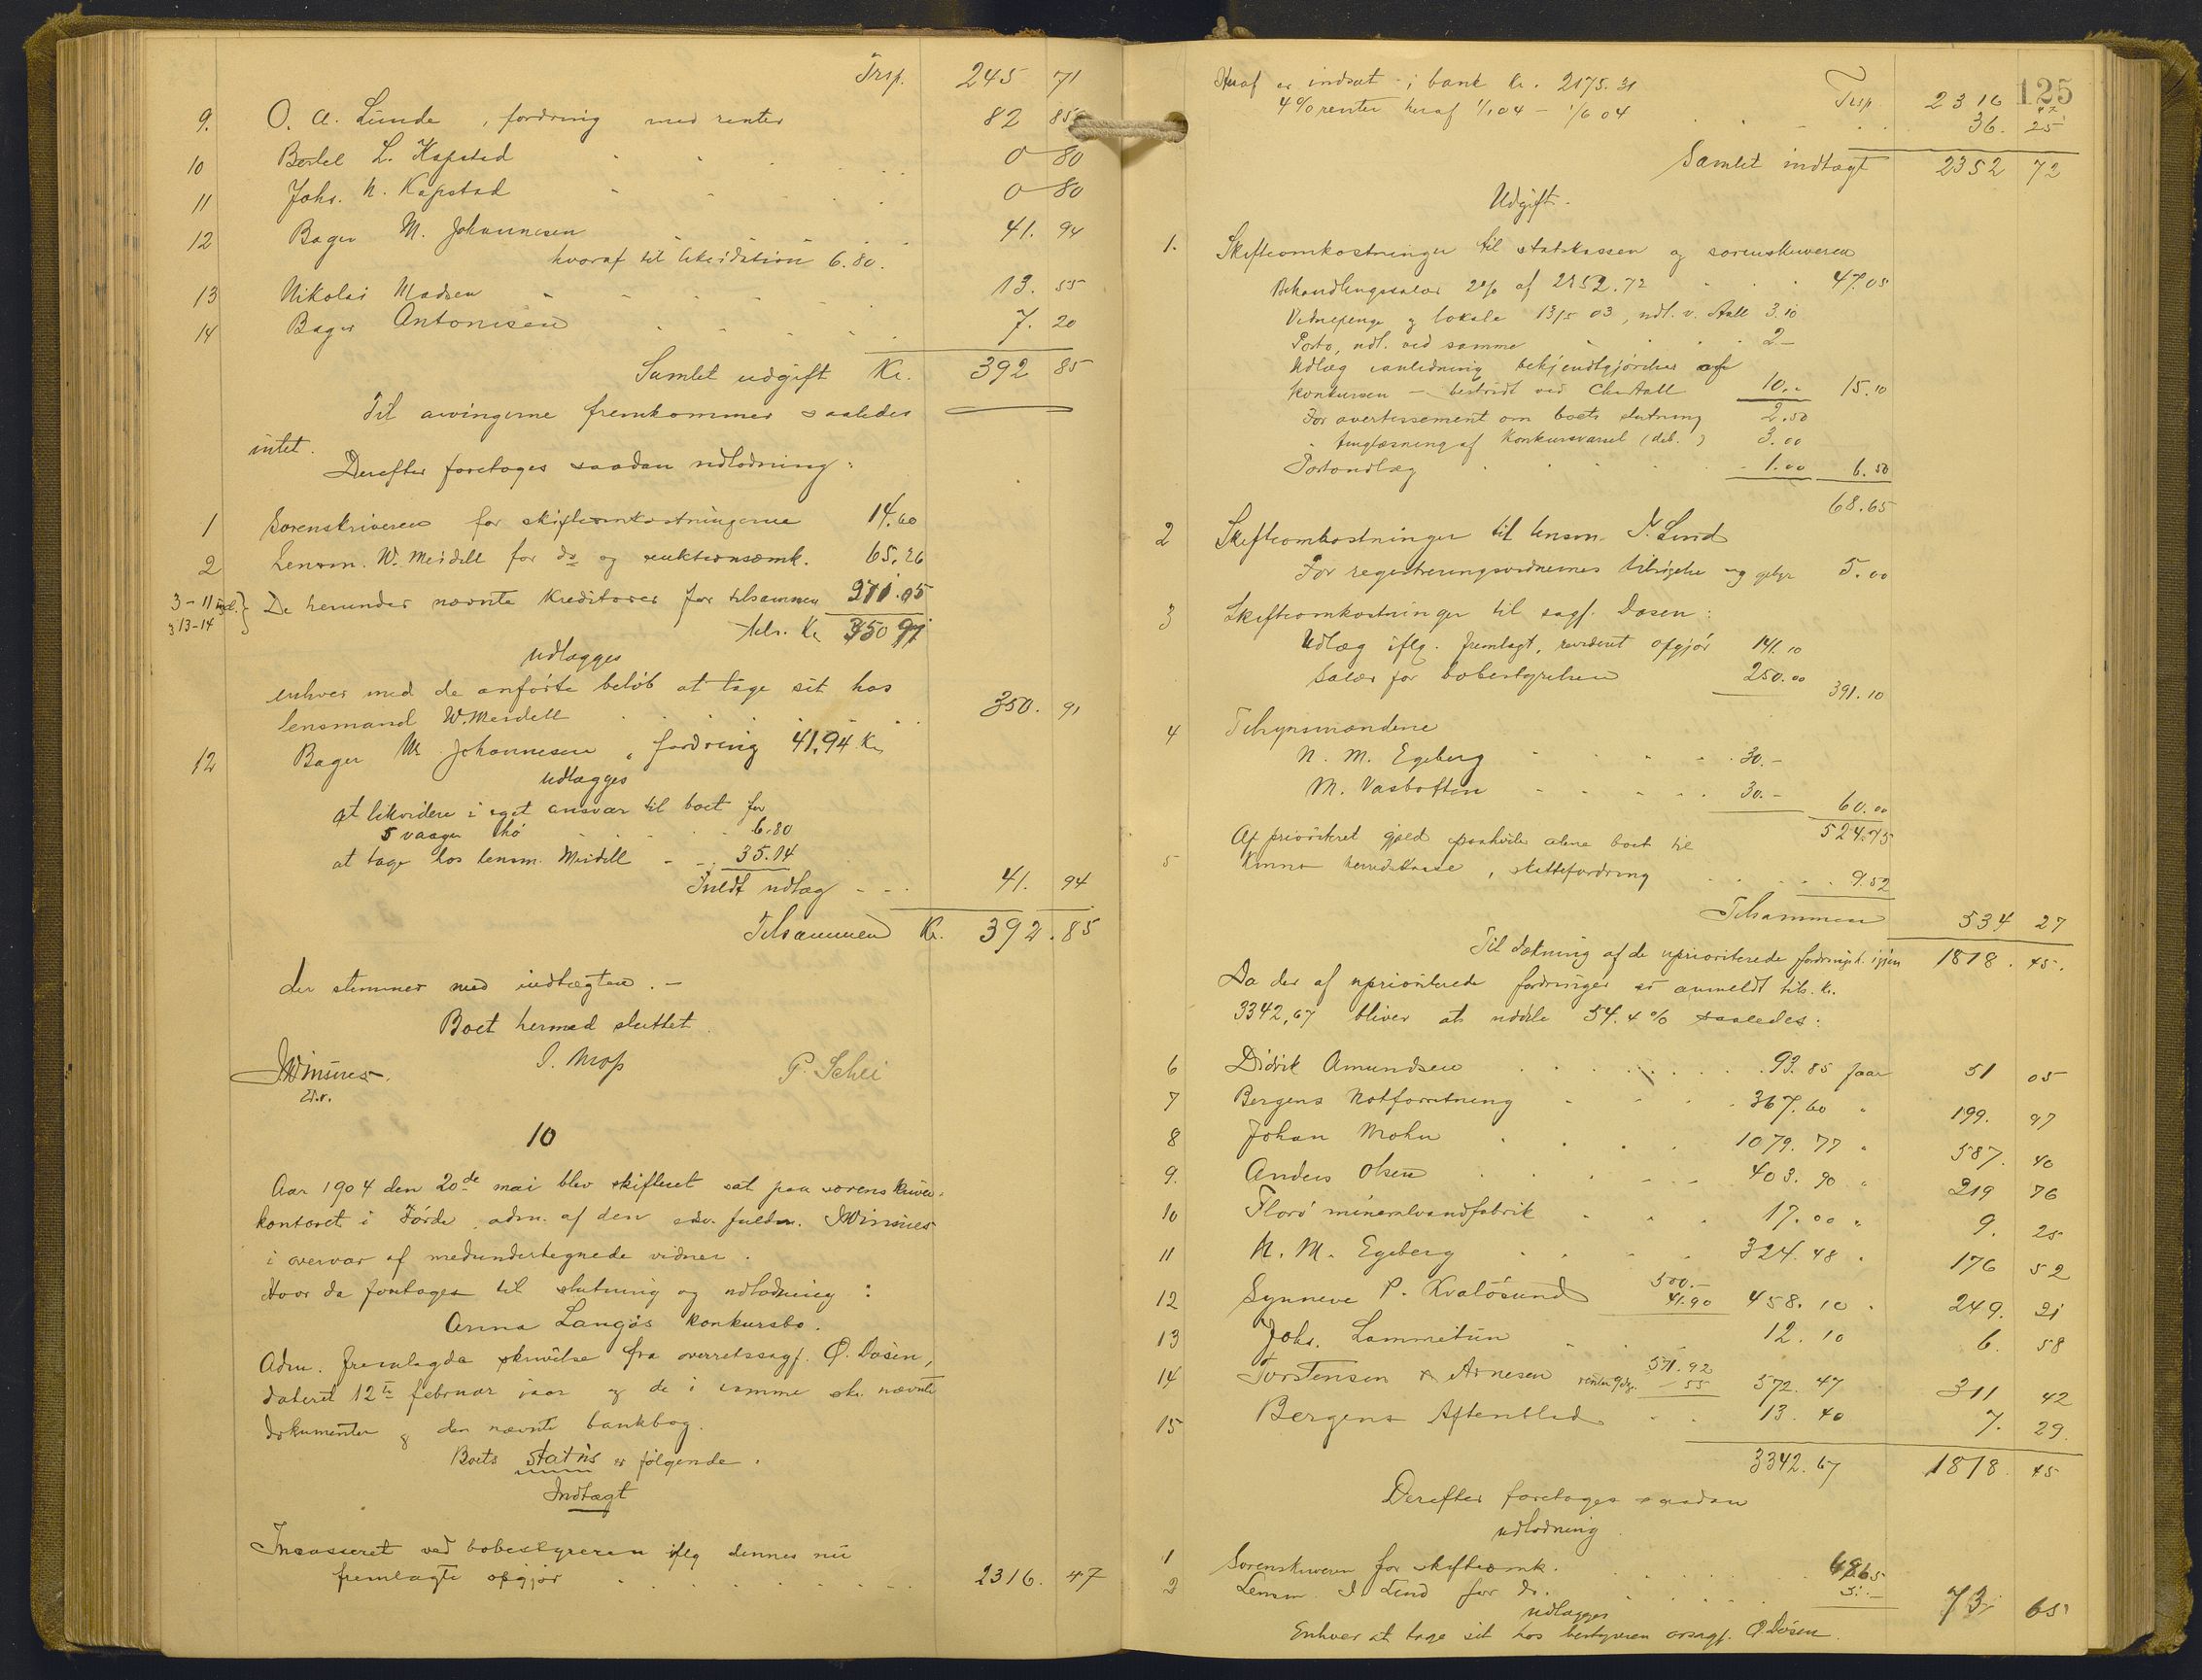 Trsp. 245 71
9. O. A. Lunde, fordring med renter 82 85
10 Bertel L. Kapstad 0 80
11 Johs. N. Kapstad 0 80
12 Bager M. Johannesen 41. 94
hvoraf til likvidation 6.80.
13 Nikolai Madsen 13. 55
14 Bager Antonisen 7. 20
Samlet udgift Kr. 392 85
Til arvingerne fremkommer saaledes
intet.
Derefter foretages saadan udlodning:
1 Sorenskriveren for skifteomkostningerne 14.60
2 Lensm. W. Meidell for do og auktionsomk. 65.26
3-11 incl. & 13-14 De herunder nævnte kreditorer for tilsammen 271.05
tils. Kr 350 91
udlægges
enhver med de anførte beløb at tage sit hos
lensmand W. Meidell 350. 91
12 Bager M. Johannesen, fordring 41,94 Kr
udlægges
at likvidere i eget ansvar til boet for
5 vaager hø 6.80
at tage hos lensm. Meidell 35.14
Fuldt udlæg 41. 94
Tilsammen Kr. 392.85
der stemmer med indtægten. -
Boet hermed sluttet.
J Winsnes. J. Mo P. Schei
10
Aar 1904 den 20de mai blev skifteret sat paa sorenskriver-
kontoret i Førde adm. af den edsv. fuldm. J Winsnes
i overvær af medundertegnede vidner.
Hvor da foretages til slutning og udlodning:
Anna Langøs konkursbo.
Adm. fremlagde skrivelse fra overretssagf. O. Døsen,
dateret 12te februar iaar og de i samme skr. nævnte
dokumenter og den nævnte bankbog.
Boets status er følgende.
Indtægt
Incasseret ved bobestyreren iflg dennes nu
fremlagte opgjør 2316. 47
125
Heraf er indsat i bank kr. 2175.31 Trsp 2316 47
4% renter heraf 1/1 04 - 1/6 04 36. 25
Samlet indtægt 2352 72
Udgift.
1. Skifteomkostninger til statskassen og sorenskriveren
Behandlingssalær 2% af 2352.72 47.05
Vidnepenge og lokale 13/5 03, udl. v. Aall 3.10
Porto, udl. ved samme 2-
Udlæg i anledning bekjendtgjørelse af
konkursen - bestridt ved Chr Aall 10.- 15.10
For avertissement om boets slutning 2.50
" tinglæsning af Konkursvarsel (deb.) 3.00
Portoudlæg 1.00 6.50
68.65
2 Skifteomkostninger til lensm. J. Lund
For registreringsvidnernes tilsigelse og gebyr 5.00
3 Skifteomkostninger til sagf. Døsen:
Udlæg iflg. fremlagt, revideret opgjør 141.10
Salær for bobestyrelsen 250.00 391.10
4 Tilsynsmændene
N. M. Egeberg 30.-
M. Vasbotten 30.- 60.00
524.75
Af prioriteret gjæld paahviler alene boet til
5 Kinns herredskasse, skattefordring 9.52
Tilsammen 534 27
Til dækning af de uprioriterede fordringsh. igjen 1818. 45.
Da der af uprioriterede fordringer er anmeldt tils. kr.
3342,67 bliver at uddele 54.4% saaledes:
6 Didrik Amundsen 93.85 faar 51 05
7 Bergens Notforretning 367.60 " 199. 97
8 Johan Mohn 1079.77 " 587. 40
9. Anders Olsen 403.90 " 219 76
10 Florø mineralvandfabrik 17.00 " 9. 25
11 N. M. Egeberg 324.48 " 176 52
12 Synneve P. Kvaløsund 500.- 41.90 458.10 " 249. 21
13 Johs. Lammetun 12.10 6. 58
14 Torstensen & Arnesen renter 9 dg. 571.92 55 572.47 311 42
15 Bergens Aftenblad 13.40 7. 29
3342.67 1818. 45
Derefter foretages saadan
udlodning
1 Sorenskriveren for skifteomk. 68.65
2 Lensm. J. Lund for do. 5.- 73 65
udlægges
Enhver at tage sit hos bestyreren orsagf. O. Døsen.